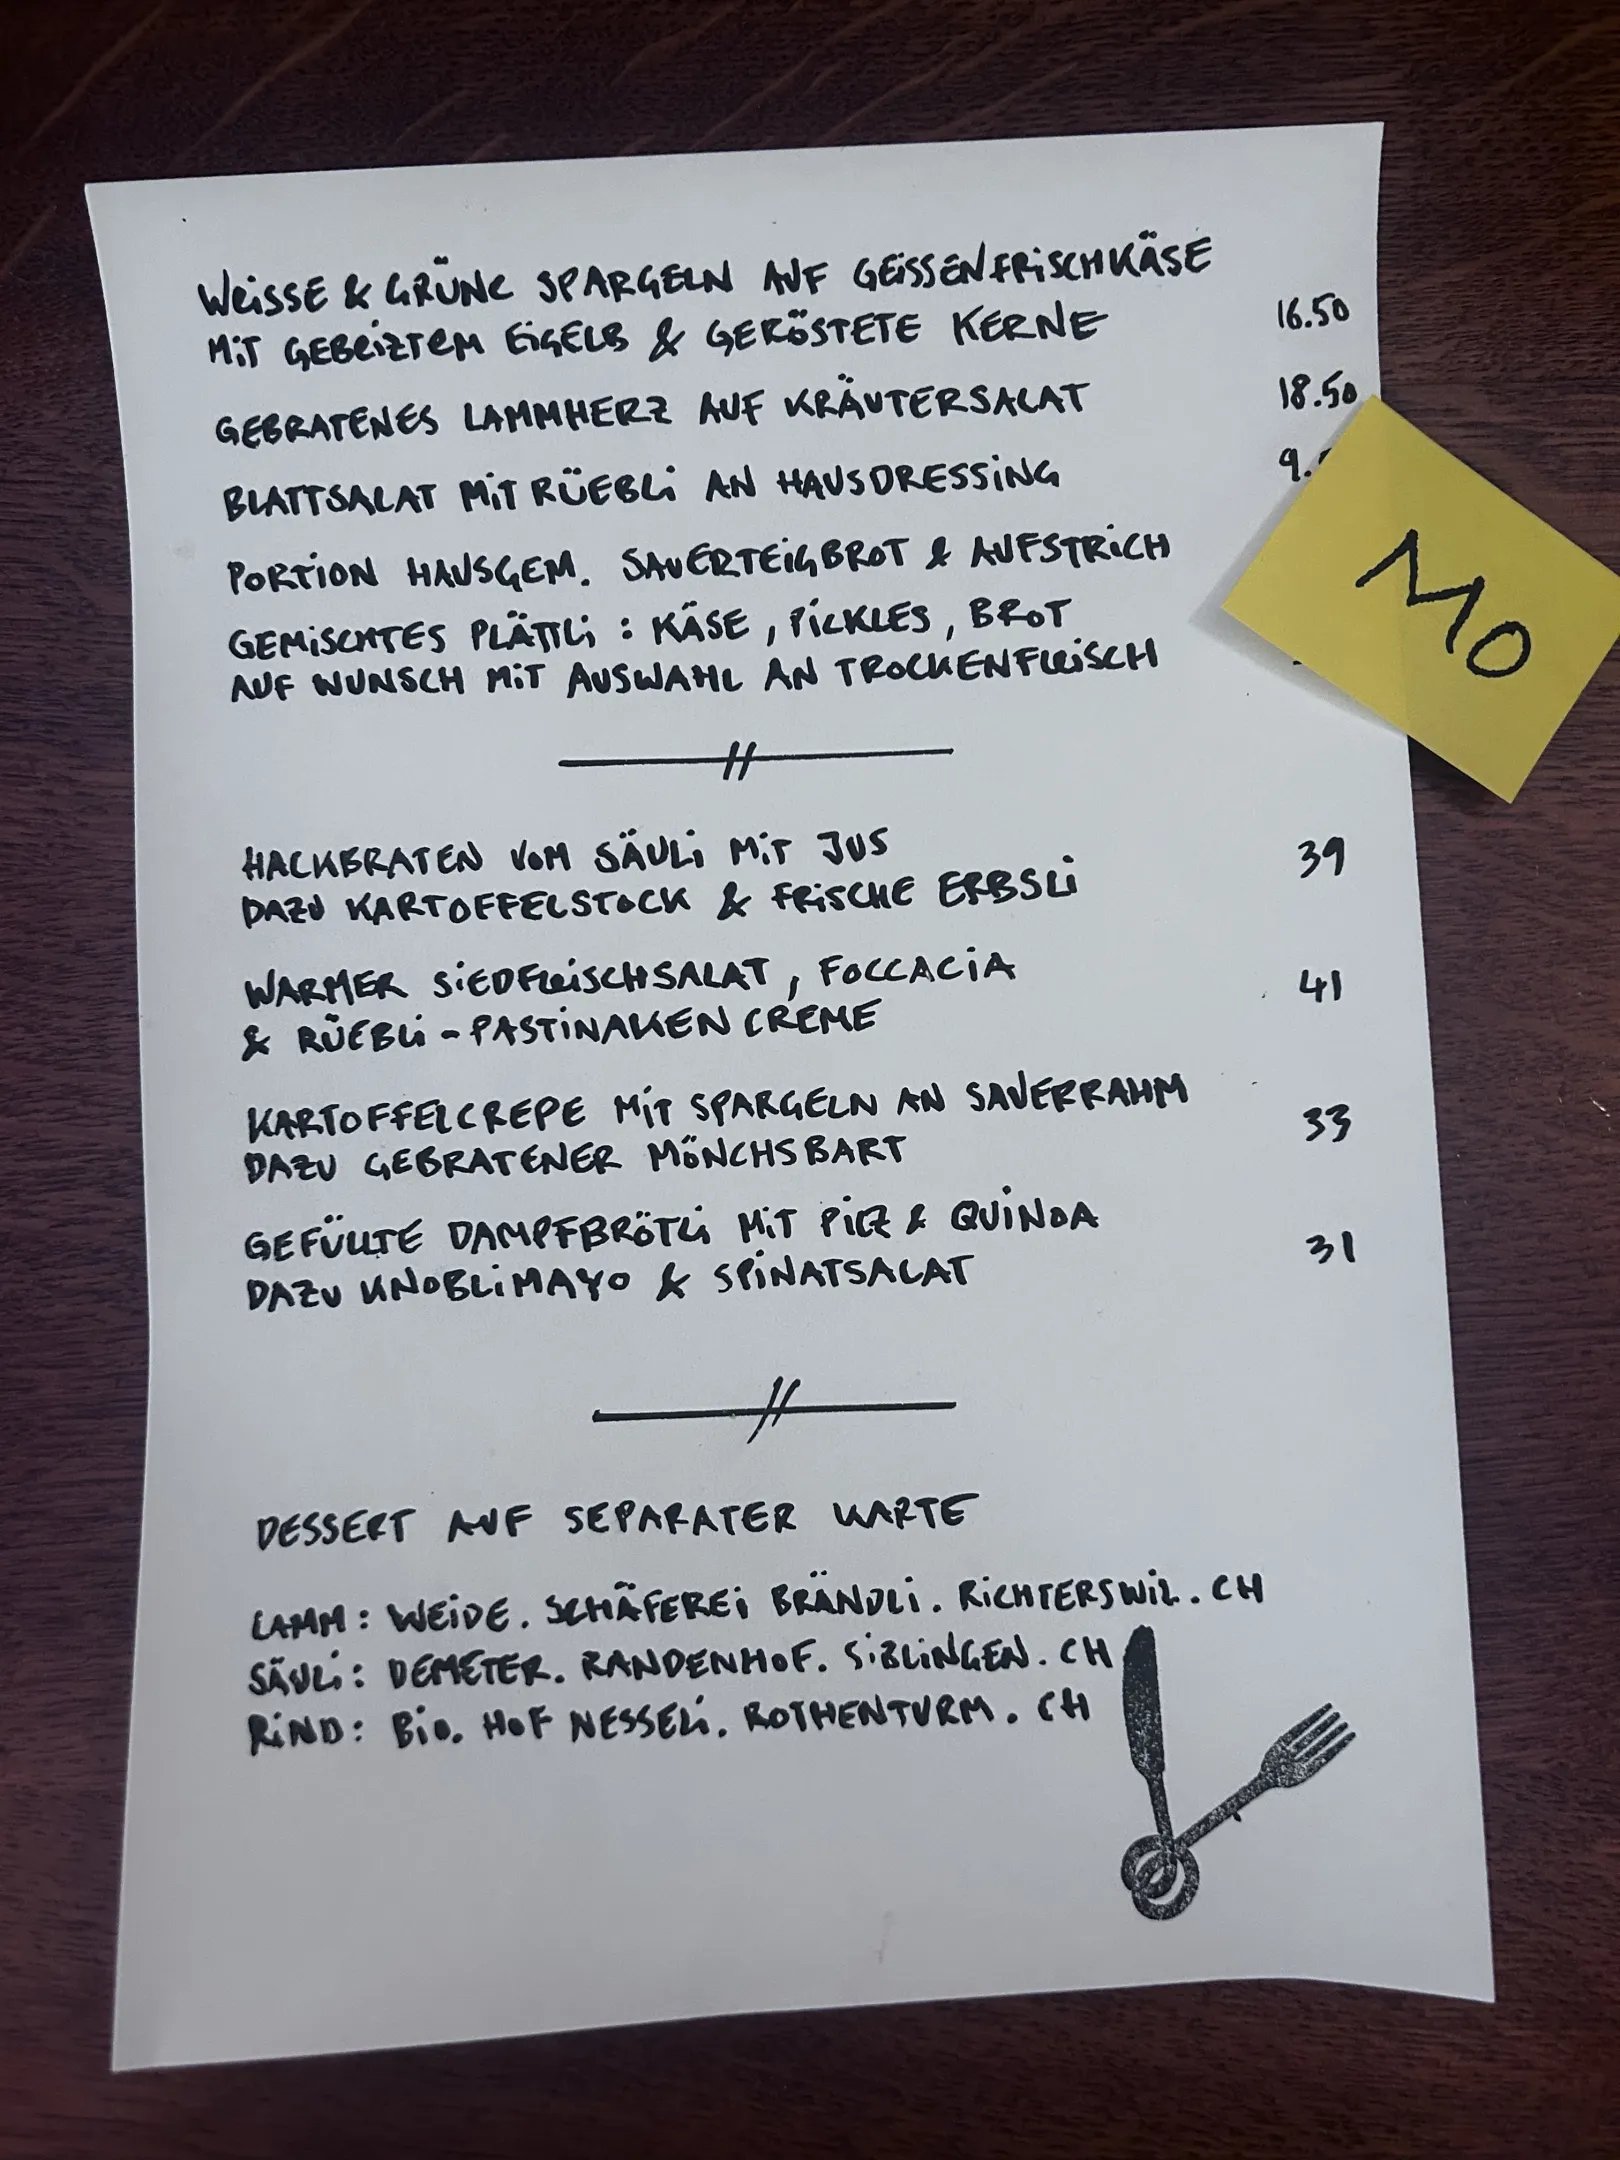 WEISSE & GRÜNE SPARGELN AUF GEISSENFRISCHKÄSE
MIT GEBEIZTEM EIGELB & GERÖSTETE KERNE 16.50
GEBRATENES LAMMHERZ AUF KRÄUTERSALAT 18.50
BLATTSALAT MIT RÜEBLI AN HAUSDRESSING 9.
PORTION HAUSGEM. SAUERTEIGBROT & AUFSTRICH
GEMISCHTES PLÄTTLI : KÄSE, PICKLES, BROT
AUF WUNSCH MIT AUSWAHL AN TROCKENFLEISCH
MO
HACKBRATEN VOM SÄULI MIT JUS 39
DAZU KARTOFFELSTOCK & FRISCHE ERBSLI
WARMER SIEDFLEISCHSALAT, FOCCACIA 41
& RÜEBLI-PASTINAKEN CREME
KARTOFFELCREPE MIT SPARGELN AN SAUERRAHM 33
DAZU GEBRATENER MÖNCHSBART
GEFÜLLTE DAMPFBRÖTLI MIT PILZ & QUINOA 31
DAZU KNOBLIMAYO & SPINATSALAT
DESSERT AUF SEPARATER KARTE
LAMM: WEIDE. SCHÄFEREI BRÄNDLI. RICHTERSWIL. CH
SÄULI: DEMETER. RANDENHOF. SIBLINGEN. CH
RIND: BIO. HOF NESSELI. ROTHENTURM. CH